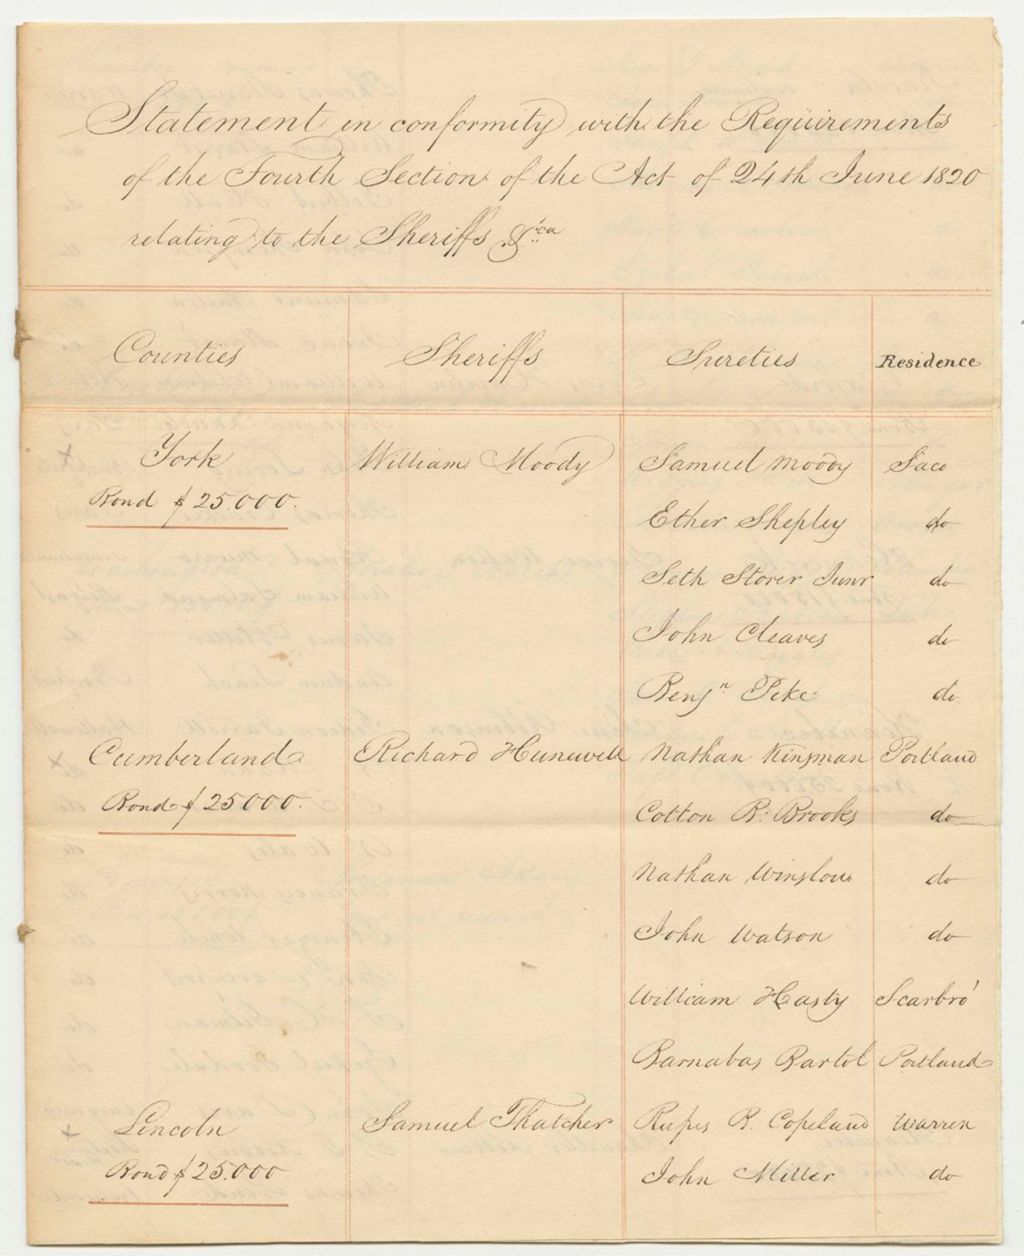 Statement in conformity with the Requirements
of the Fourth Section of the Act of 24th June 1820
relating to the Sheriffs &ca
Counties Sheriffs Sureties Residence
York William Moody Samuel Moody Saco
Bond $25.000.
Ether Shepley do
Seth Storer Junr do
John Cleaves do
Benjn Pike do
Cumberland Richard Hunewell Nathan Kinsman Portland
Bond $25000.
Cotton B: Brooks do
Nathan Winslow do
John Watson do
William Hasty Scarbro'
Barnabas Bartol Portland
Lincoln Samuel Thatcher Rufus B. Copeland Warren
Bond $25.000 John Miller do